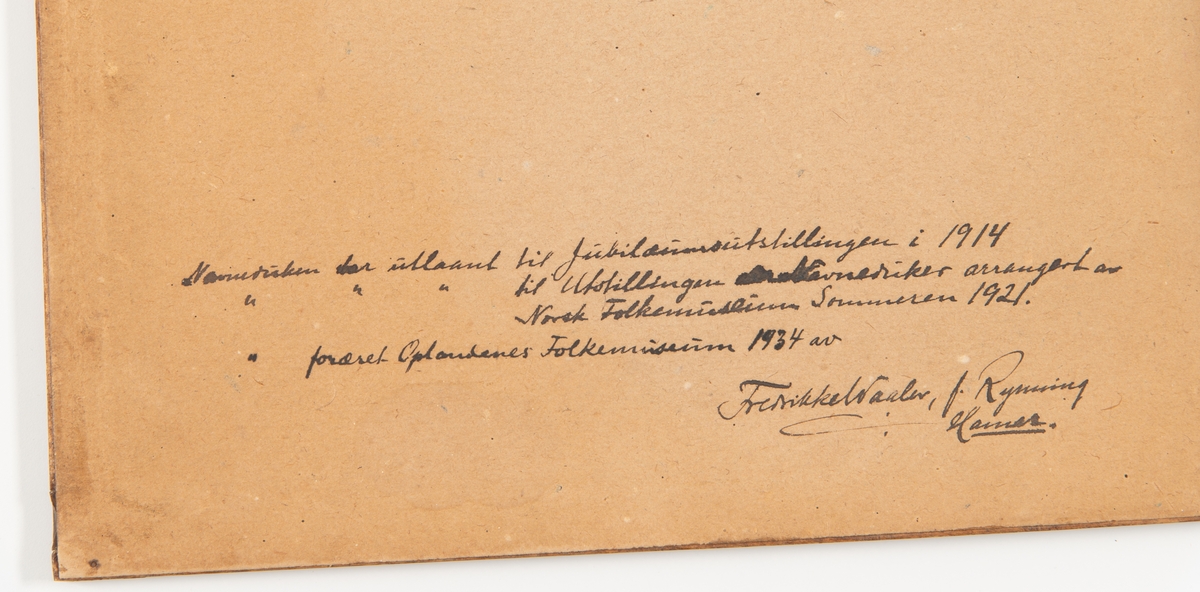 Navneduken har utlaant til Jubilæumsutstillingen i 1914
" " " til Utstillingen av Navneduker arrangert av
Norsk Folkemuseum Sommeren 1921.
" foræret Oplandenes Folkemuseum 1934 av
Fredrikke Waaler, f. Rynning
Hamar.